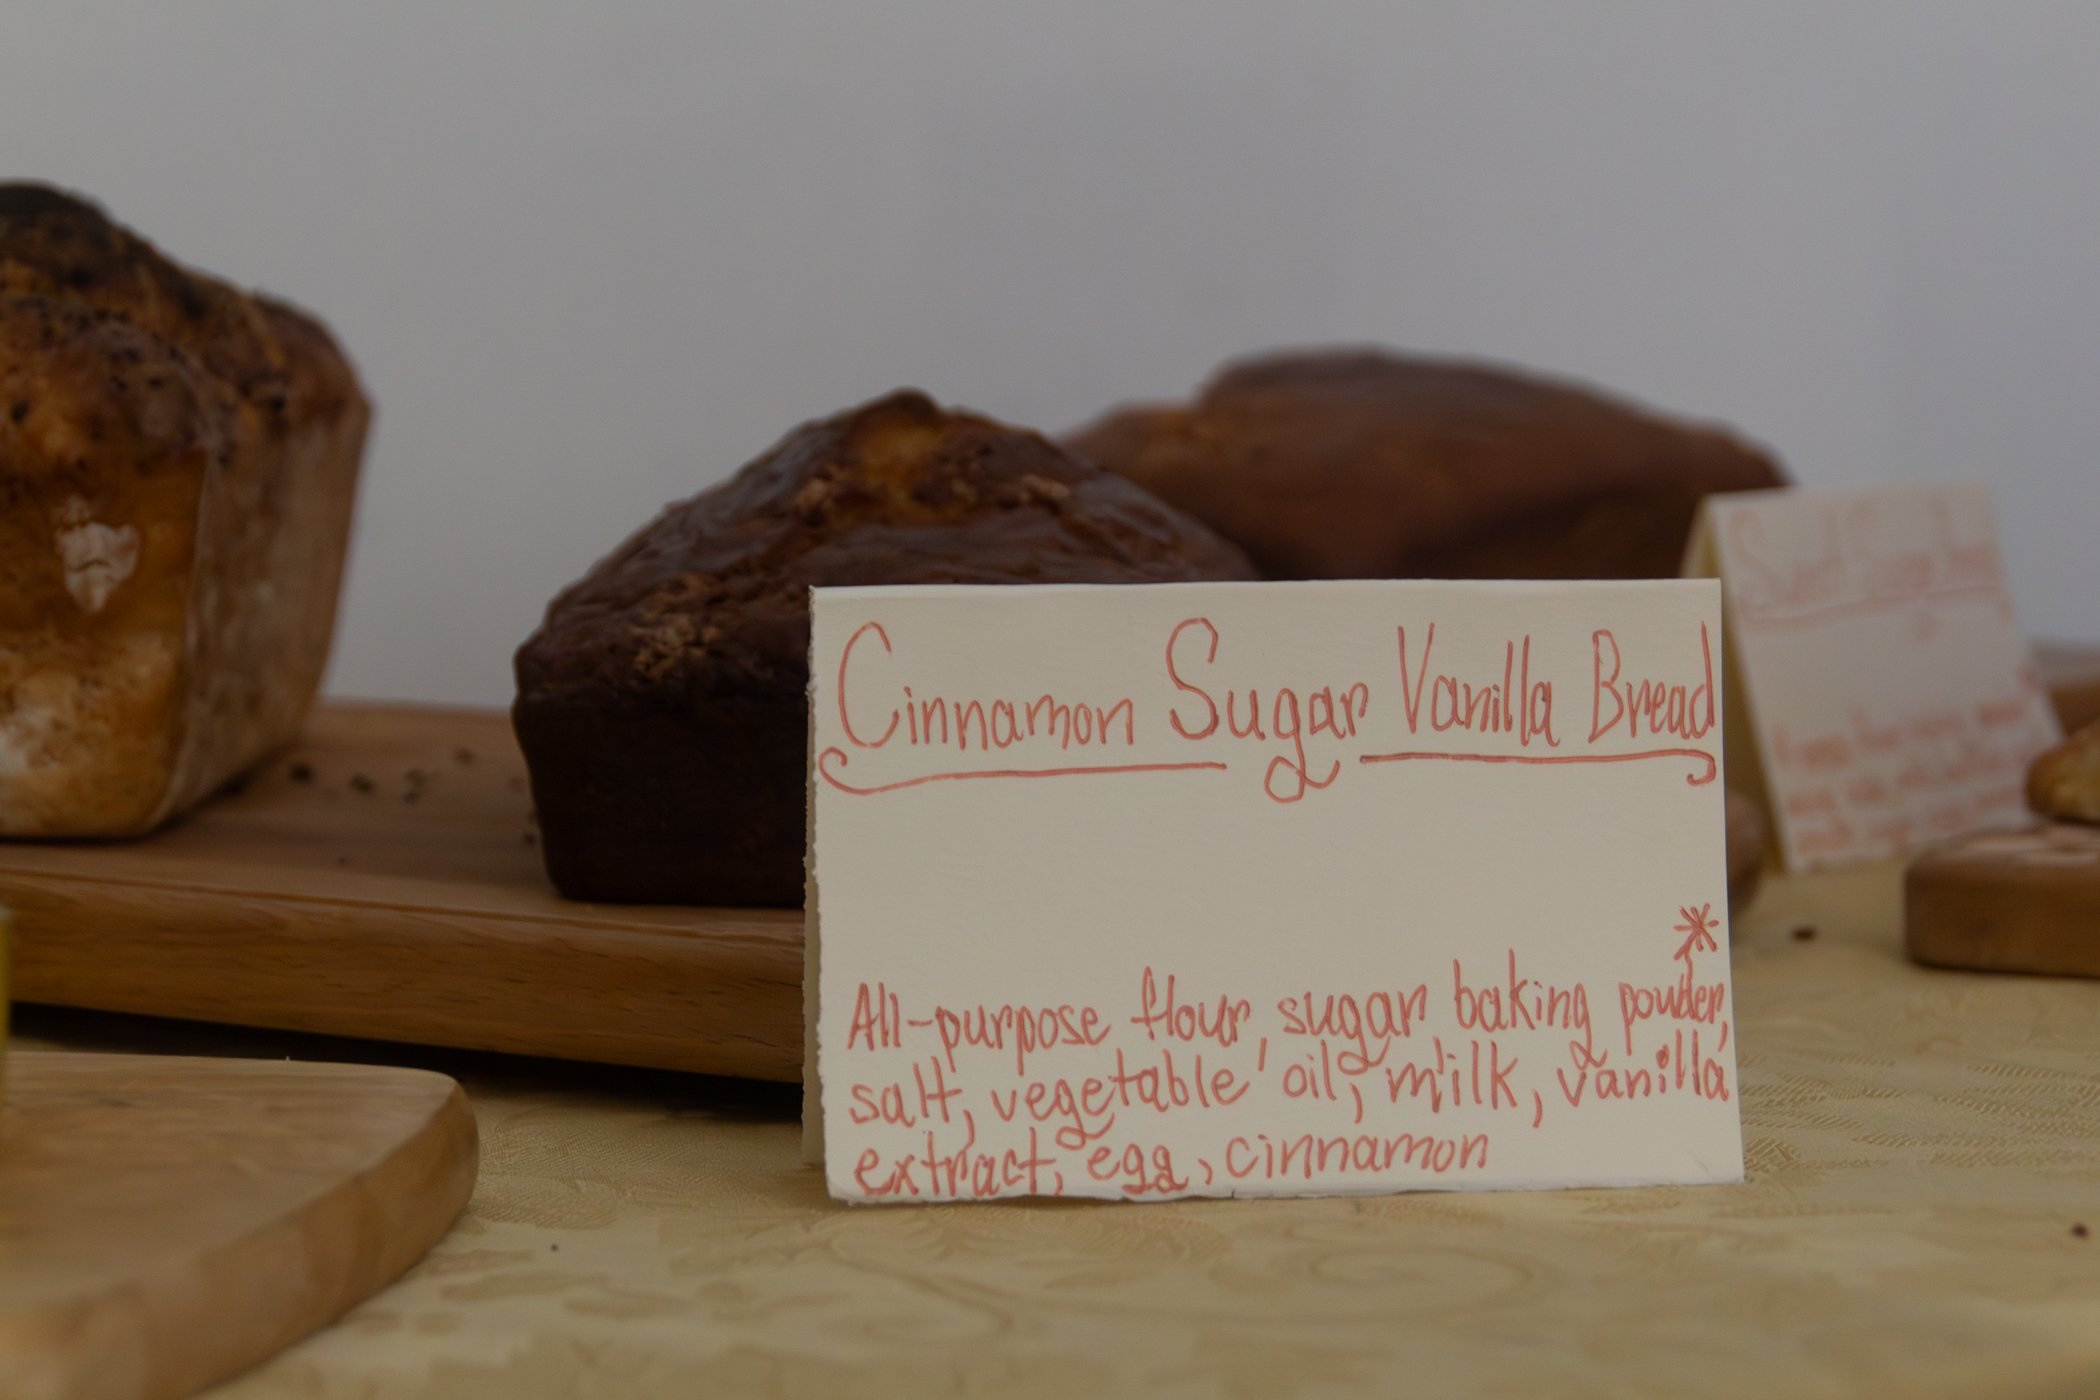 Cinnamon Sugar Vanilla Bread
*
All-purpose flour, sugar, baking powder,
salt, vegetable oil, milk, vanilla
extract, egg, cinnamon